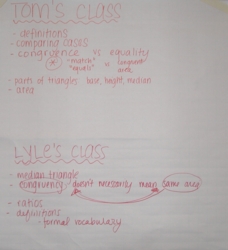 TOM'S CLASS
- definitions
- comparing cases
- congruence vs equality
"match"
"equals"
area
- parts of triangles: base, height, median
- area
LYLE'S CLASS
- median triangle
- congruency doesn't necessarily mean same area
- ratios
- definitions
- formal vocabulary